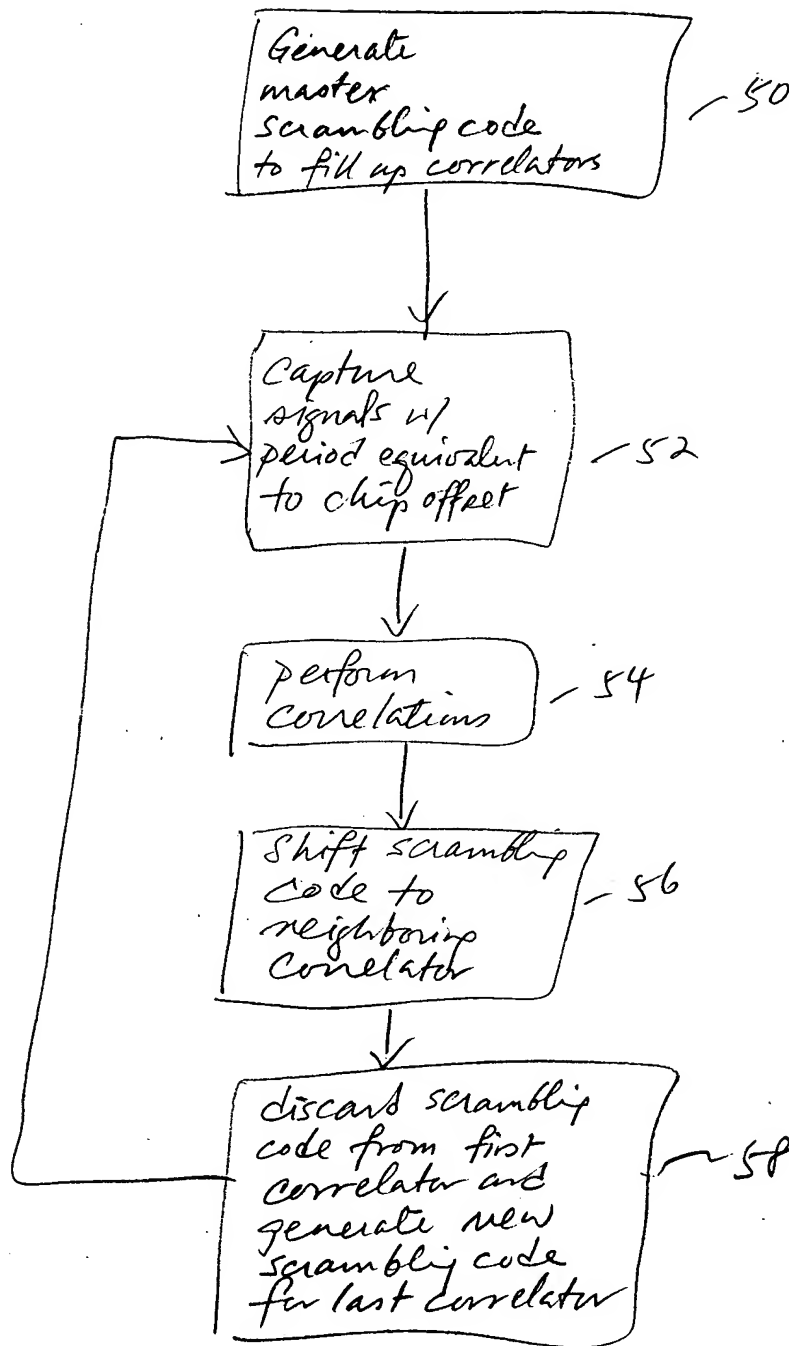 Generate
master
scrambling code
to fill up correlators
50
Capture
signals w/
period equivalent
to chip offset
52
perform
correlations
54
Shift scrambling
code to
neighboring
correlator
56
discard scrambling
code from first
correlator and
generate new
scrambling code
for last correlator
58